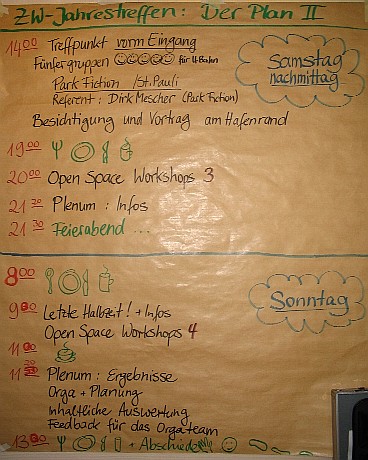 ZW-Jahrestreffen: Der Plan II
Samstag
nachmittag
14 00 Treffpunkt vorm Eingang
Fünfergruppen für U-Bahn
Park Fiction / St. Pauli
Referent: Dirk Mescher (Park Fiction)
Besichtigung und Vortrag am Hafenrand
19 00
20 00 Open Space Workshops 3
Plenum: Infos
21 30 Feierabend ...
Sonntag
8 00
9 00 Letzte Halbzeit! + Infos
Open Space Workshops 4
11 00
11 Plenum: Ergebnisse
Orga + Planung
Inhaltliche Auswertung
Feedback für das Orgateam
13 00 + Abschied